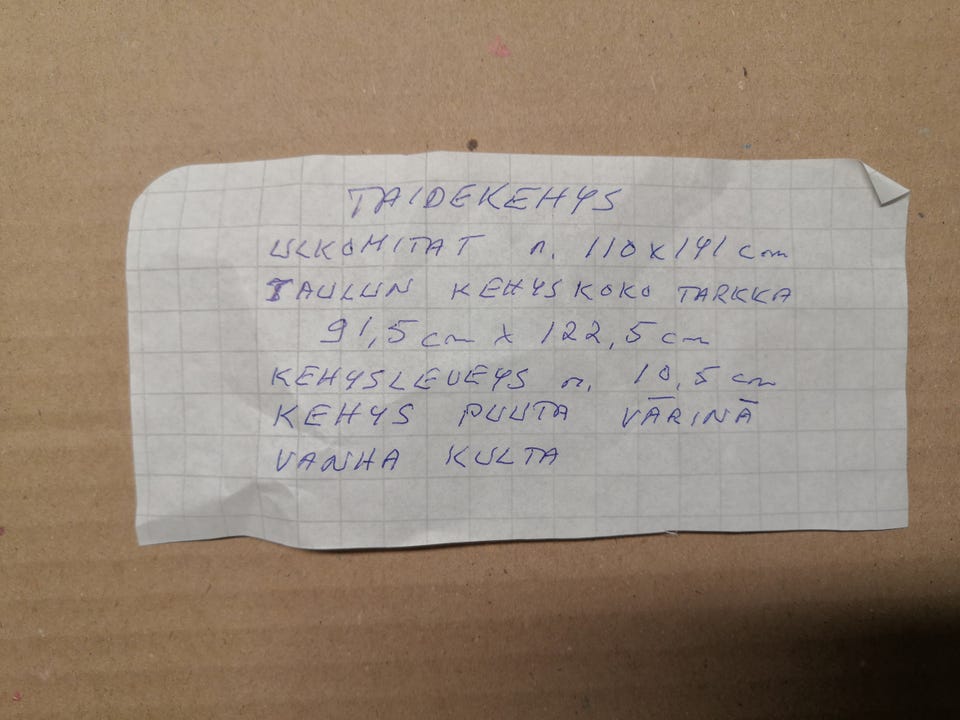 TAIDEKEHYS
ULKOMITAT n. 110x141cm
TAULUN KEHYSKOKO TARKKA
91,5cm x 122,5cm
KEHYSLEVEYS n. 10,5 cm
KEHYS PUUTA VÄRINÄ
VANHA KULTA